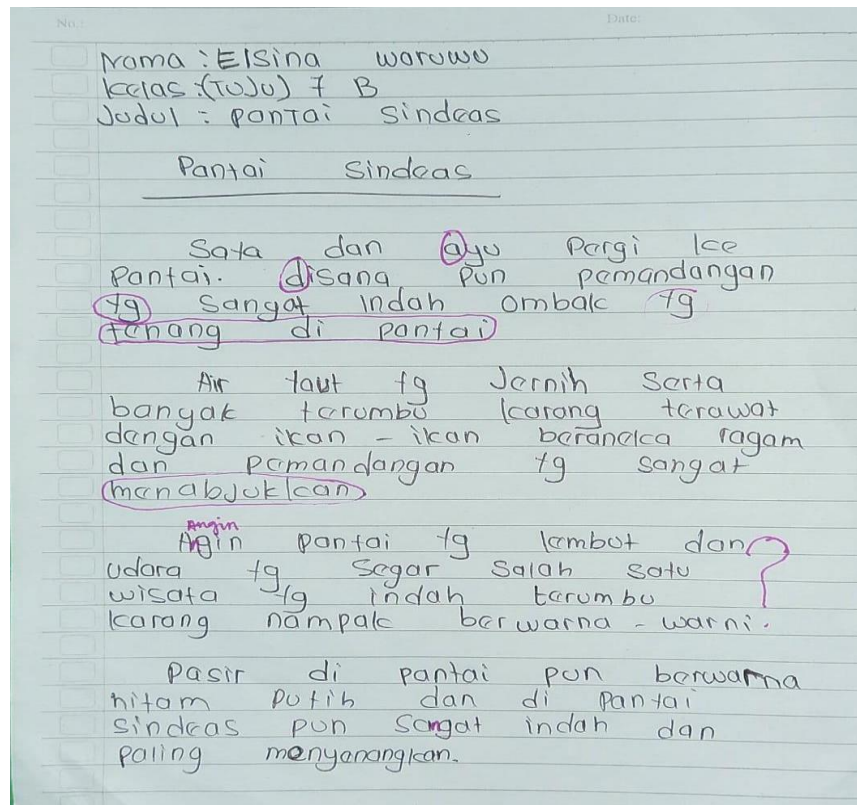 No.:
Date:
Nama : Elsina waruwu
kelas :(Tuju) 7 B
Judul : panTai sindeas
Pantai sindeas
Saya dan ayu Pergi ke
Pantai. disana pun pemandangan
yg sangat indah ombak yg
tenang di pantai
Air laut yg Jernih serta
banyak terumbu karang terawat
dengan ikan - ikan beraneka ragam
dan pemandangan yg sangat
menabjukkan
Angin
Agin pantai yg lembut dan ?
udara yg segar salah satu
wisata yg indah terumbu
karang nampak berwarna - warni.
Pasir di pantai pun berwarna
hitam putih dan di pantai
sindeas pun sangat indah dan
paling menyenangkan.